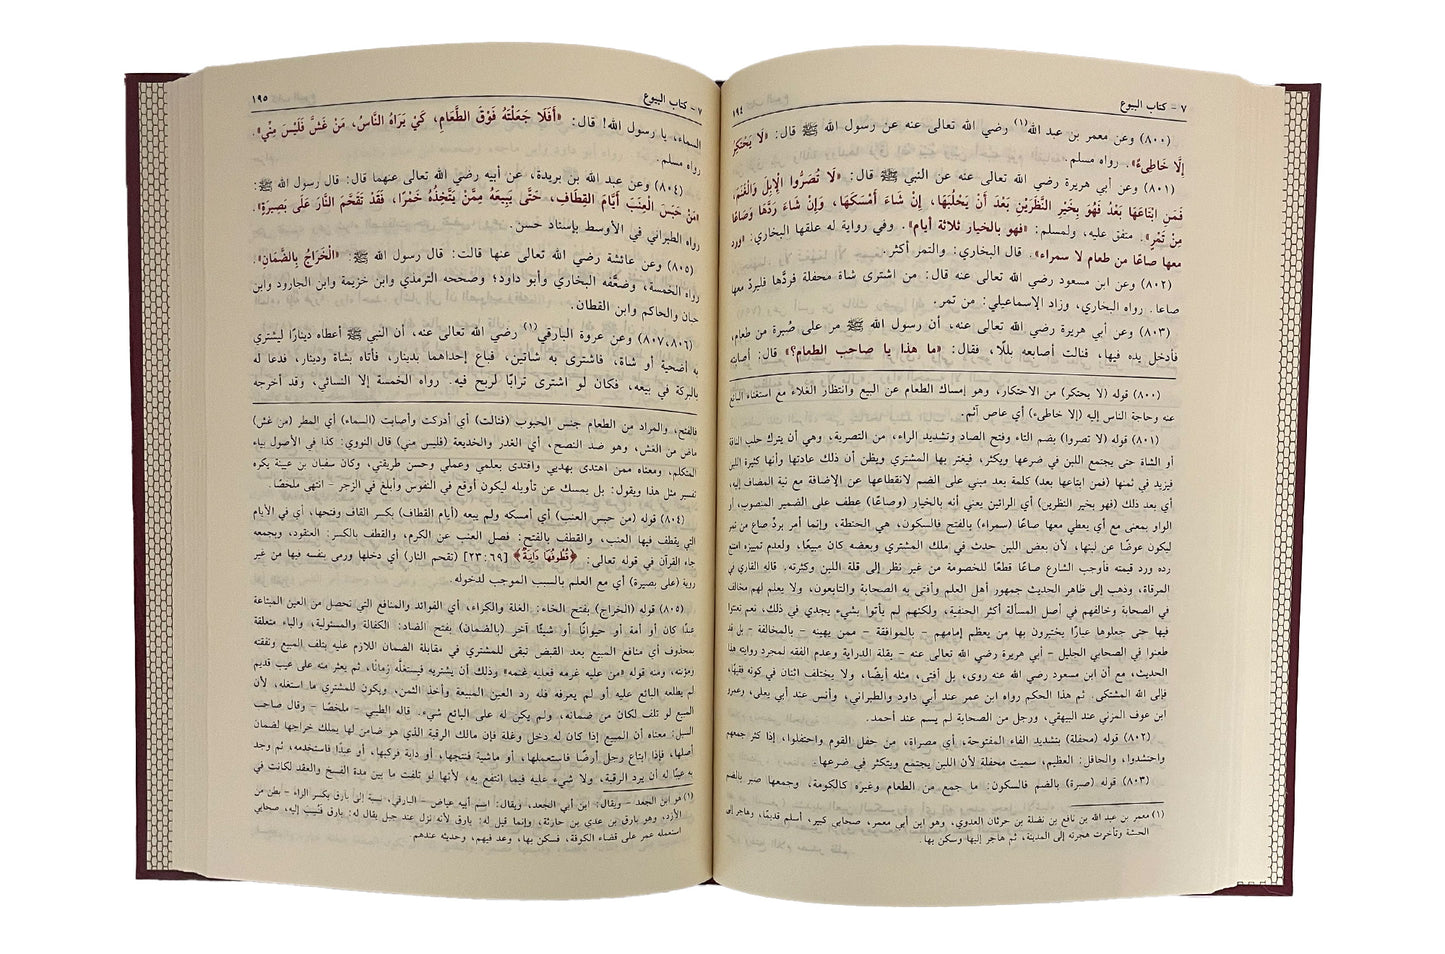 ٧ - كتاب البيوع ١٩٤
(٨٠٠) وعن معمر بن عبد الله(١) رضي الله تعالى عنه عن رسول الله ﷺ قال: «لَا يَحْتَكِرُ
إِلَّا خَاطِئٌ». رواه مسلم.
(٨٠١) وعن أبي هريرة رضي الله تعالى عنه عن النبي ﷺ قال: «لَا تُصَرُّوا الْإِبِلَ وَالْغَنَمَ،
فَمَنِ ابْتَاعَهَا بَعْدُ فَهُوَ بِخَيْرِ النَّظَرَيْنِ بَعْدَ أَنْ يَحْلُبَهَا، إِنْ شَاءَ أَمْسَكَهَا، وَإِنْ شَاءَ رَدَّهَا وَصَاعًا
مِنْ تَمْرٍ». متفق عليه، ولمسلم: «فهو بالخيار ثلاثة أيام». وفي رواية له علقها البخاري: «ورد
معها صاعًا من طعام لا سمراء». قال البخاري: والتمر أكثر.
(٨٠٢) وعن ابن مسعود رضي الله تعالى عنه قال: من اشترى شاة محفلة فردَّها فليردّ معها
صاعا. رواه البخاري، وزاد الإسماعيلي: من تمر.
(٨٠٣) وعن أبي هريرة رضي الله تعالى عنه، أن رسول الله ﷺ مر على صُبرة من طعام،
فأدخل يده فيها، فنالت أصابعه بللًا، فقال: «ما هذا يا صاحب الطعام؟» قال: أصابته
(٨٠٠) قوله (لا يحتكر) من الاحتكار، وهو إمساك الطعام عن البيع وانتظار الغلاء مع استغناء البائع
عنه وحاجة الناس إليه (إلا خاطىء) أي عاص آثم.
(٨٠١) قوله (لا تصروا) بضم التاء وفتح الصاد وتشديد الراء، من التصرية، وهي أن يترك حلب الناقة
أو الشاة حتى يجتمع اللبن في ضرعها ويكثر، فيغتر بها المشتري ويظن أن ذلك عادتها وأنها كثيرة اللبن
فيزيد في ثمنها (فمن ابتاعها بعد) كلمة بعد مبني على الضم لانقطاعها عن الإضافة مع نية المضاف إليه،
أي بعد ذلك (فهو بخير النظرين) أي الرائين يعني أنه بالخيار (وصاعًا) عطف على الضمير المنصوب، أو
الواو بمعنى مع أي يعطي معها صاعًا (سمراء) بالفتح فالسكون، هي الحنطة، وإنما أمر بردّ صاع من تمر
ليكون عوضًا عن لبنها، لأن بعض اللبن حدث في ملك المشتري وبعضه كان مبيعًا، ولعدم تمييزه امتنع
رده ورد قيمته فأوجب الشارع صاعًا قطعًا للخصومة من غير نظر إلى قلة اللبن وكثرته. قاله القاري في
المرقاة، وذهب إلى ظاهر الحديث جمهور أهل العلم وأفتى به الصحابة والتابعون، ولا يعلم لهم مخالف
في الصحابة وخالفهم في أصل المسألة أكثر الحنفية، ولكنهم لم يأتوا بشيء يجدي في ذلك، نعم نعتوا
فيها حتى جعلوها عيارًا يختبرون بها من يعظم إمامهم - بالموافقة - ممن يهينه - بالمخالفة - بل قد
طعنوا في الصحابي الجليل - أبي هريرة رضي الله تعالى عنه - بقلة الدراية وعدم الفقه لمجرد روايته هذا
الحديث، مع أن ابن مسعود رضي الله عنه روى، بل أفتى، مثله أيضًا، ولا يختلف اثنان في كونه فقيهًا،
فإلى الله المشتكى. ثم هذا الحكم رواه ابن عمر عند أبي داود والطبراني، وأنس عند أبي يعلى، وعمرو
ابن عوف المزني عند البيهقي، ورجل من الصحابة لم يسم عند أحمد.
(٨٠٢) قوله (محفلة) بتشديد الفاء المفتوحة، أي مصراة، من حفل القوم واحتفلوا، إذا كثر جمعهم
واحتشدوا، والحافل: العظيم، سميت محفلة لأن اللبن يجتمع ويتكثر في ضرعها.
(٨٠٣) قوله (صبرة) بالضم فالسكون: ما جمع من الطعام وغيره كالكومة، وجمعها صبر بالضم
(١) معمر بن عبد الله بن نافع بن نضلة بن حرثان العدوي، وهو ابن أبي معمر، صحابي كبير، أسلم قديمًا، وهاجر إلى
الحبشة وتأخرت هجرته إلى المدينة، ثم هاجر إليها وسكن بها.
٧ - كتاب البيوع ١٩٥
السماء، يا رسول الله! قال: «أَفَلَا جَعَلْتَهُ فَوْقَ الطَّعَامِ، كَيْ يَرَاهُ النَّاسُ، مَنْ غَشَّ فَلَيْسَ مِنِّي».
رواه مسلم.
(٨٠٤) وعن عبد الله بن بريدة، عن أبيه رضي الله تعالى عنهما قال: قال رسول الله ﷺ:
«مَنْ حَبَسَ الْعِنَبَ أَيَّامَ الْقِطَافِ، حَتَّى يَبِيعَهُ مِمَّنْ يَتَّخِذُهُ خَمْرًا، فَقَدْ تَقَحَّمَ النَّارَ عَلَى بَصِيرَةٍ».
رواه الطبراني في الأوسط بإسناد حسن.
(٨٠٥) وعن عائشة رضي الله تعالى عنها قالت: قال رسول الله ﷺ: «الْخَرَاجُ بِالضَّمَانِ».
رواه الخمسة، وضعَّفه البخاري وأبو داود؛ وصححه الترمذي وابن خزيمة وابن الجارود وابن
حبان والحاكم وابن القطان.
(٨٠٧،٨٠٦) وعن عروة البارقي(١) رضي الله تعالى عنه، أن النبي ﷺ أعطاه دينارًا ليشتري
به أضحية أو شاة، فاشترى به شاتين، فباع إحداهما بدينار، فأتاه بشاة ودينار، فدعا له
بالبركة في بيعه، فكان لو اشترى ترابًا لربح فيه. رواه الخمسة إلا النسائي، وقد أخرجه
فالفتح، والمراد من الطعام جنس الحبوب (فنالت) أي أدركت وأصابت (السماء) أي المطر (من غش)
ماض من الغش، وهو ضد النصح، أي الغدر والخديعة (فليس مني) قال النووي: كذا في الأصول بياء
المتكلم، ومعناه ممن اهتدى بهديي واقتدى بعلمي وعملي وحسن طريقتي، وكان سفيان بن عيينة يكره
تفسير مثل هذا ويقول: بل يمسك عن تأويله ليكون أوقع في النفوس وأبلغ في الزجر - انتهى ملخصًا.
(٨٠٤) قوله (من حبس العنب) أي أمسكه ولم يبعه (أيام القطاف) بكسر القاف وفتحها، أي في الأيام
التي يقطف فيها العنب، والقطف بالفتح: فصل العنب عن الكرم، والقطف بالكسر: العنقود، وبجمعه
جاء القرآن في قوله تعالى: ﴿قُطُوفُهَا دَانِيَةٌ﴾ [٦٩:٢٣] (تقحم النار) أي دخلها ورمى بنفسه فيها من غير
روية (على بصيرة) أي مع العلم بالسبب الموجب لدخوله.
(٨٠٥) قوله (الخراج) بفتح الخاء: الغلة والكراء، أي الفوائد والمنافع التي تحصل من العين المبتاعة
عبدًا كان أو أمة أو حيوانًا أو شيئًا آخر (بالضمان) بفتح الضاد: الكفالة والمسئولية، والباء متعلقة
بمحذوف أي منافع المبيع بعد القبض تبقى للمشتري في مقابلة الضمان اللازم عليه بتلف المبيع ونفقته
ومؤنته، ومنه قوله «من عليه غرمه فعليه غنمه» وذلك أن يشتريه فيستغلّه زمانًا، ثم يعثر منه على عيب قديم
لم يطلعه البائع عليه أو لم يعرفه فله رد العين المبيعة وأخذ الثمن، ويكون للمشتري ما استغله، لأن
المبيع لو تلف لكان من ضمانه، ولم يكن له على البائع شيء. قاله الطيبي - ملخصًا - وقال صاحب
السبل: معناه أن المبيع إذا كان له دخل وغلة فإن مالك الرقبة الذي هو ضامن لها يملك خراجها لضمان
أصلها، فإذا ابتاع رجل أرضًا فاستعملها، أو ماشية فنتجها، أو دابة فركبها، أو عبدًا فاستخدمه، ثم وجد
به عيبًا له أن يرد الرقبة، ولا شيء عليه فيما انتفع به، لأنها لو تلفت ما بين مدة الفسخ والعقد لكانت في
(١) هو ابن الجعد - ويقال: ابن أبي الجعد، ويقال: اسم أبيه عياض - البارقي، نسبة إلى بارق بكسر الراء - بطن من
الأزد، وهو بارق بن عدي بن حارثة، وإنما قيل له: بارق لأنه نزل عند جبل يقال له: بارق فنُسِب إليه، صحابي
استعمله عمر على قضاء الكوفة، فسكن بها، وعد فيهم، وحديثه عندهم